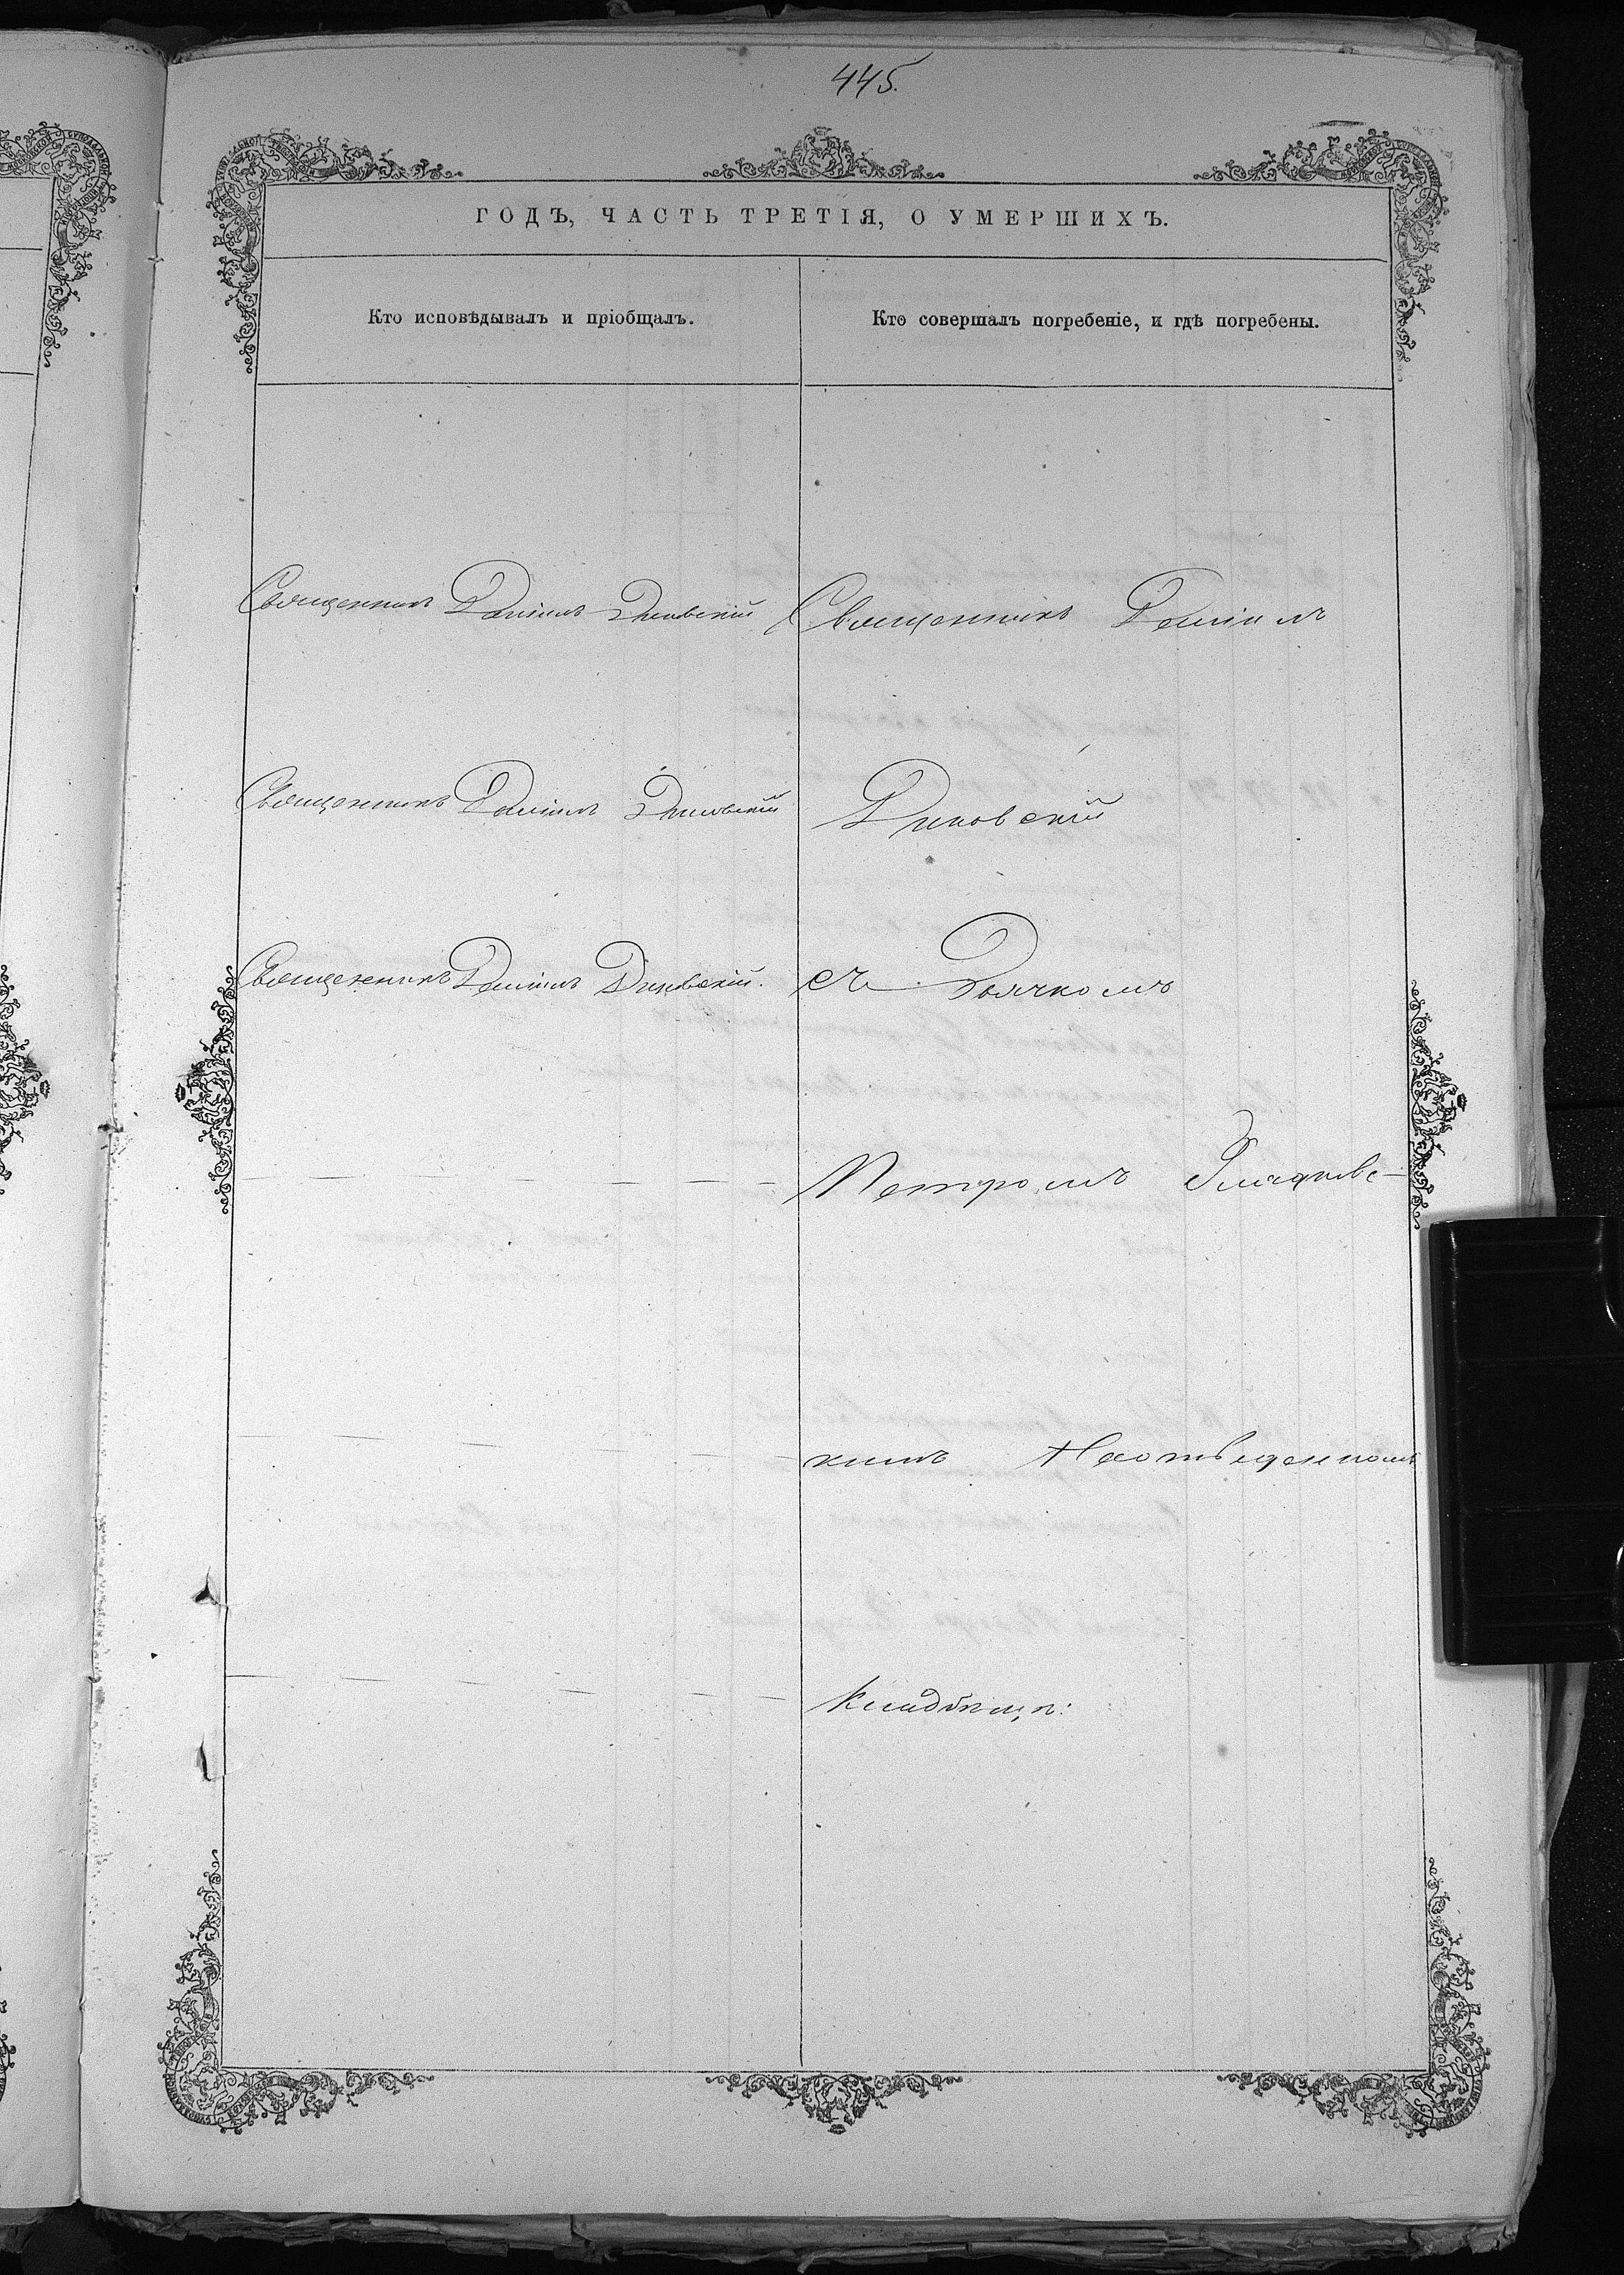 445.
ГОДЪ, ЧАСТЬ ТРЕТІЯ, О УМЕРШИХЪ.
Кто исповѣдывалъ и пріобщалъ.
Кто совершалъ погребеніе, и гдѣ погребены.
Священникъ Даніилъ Диковскій
Священникъ Даніилъ Диковскій
Священникъ Даніилъ Диковскій.
Священникъ Даніилъ
Диковскій
съ Дьячкомъ
Петромъ
кимъ На отведенномъ
Кладбищѣ: